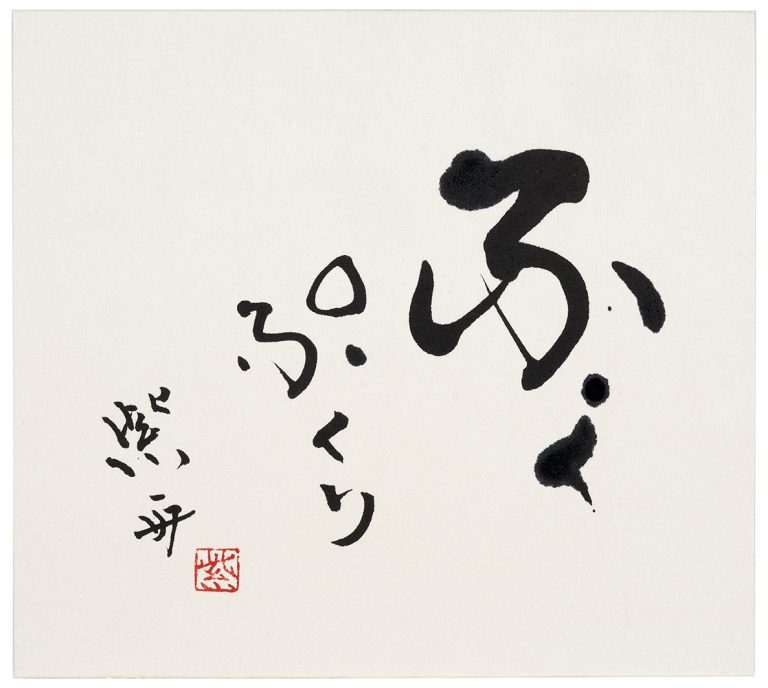 ふく
ぷくり
紫舟
紫